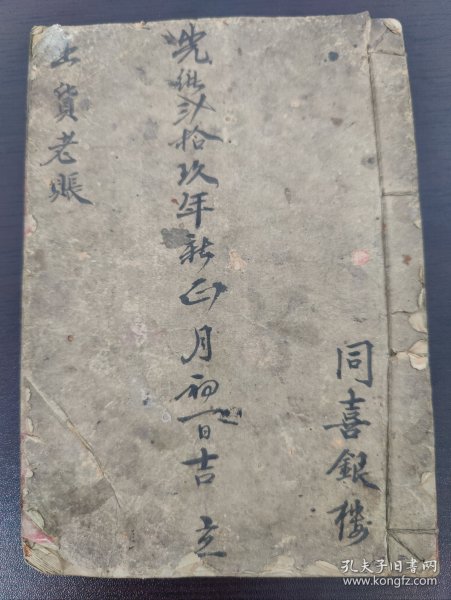 同喜銀樓
光緒弐拾玖年新正月初一日吉立
出貨老賬
孔夫子旧书网
www.kongfz.com